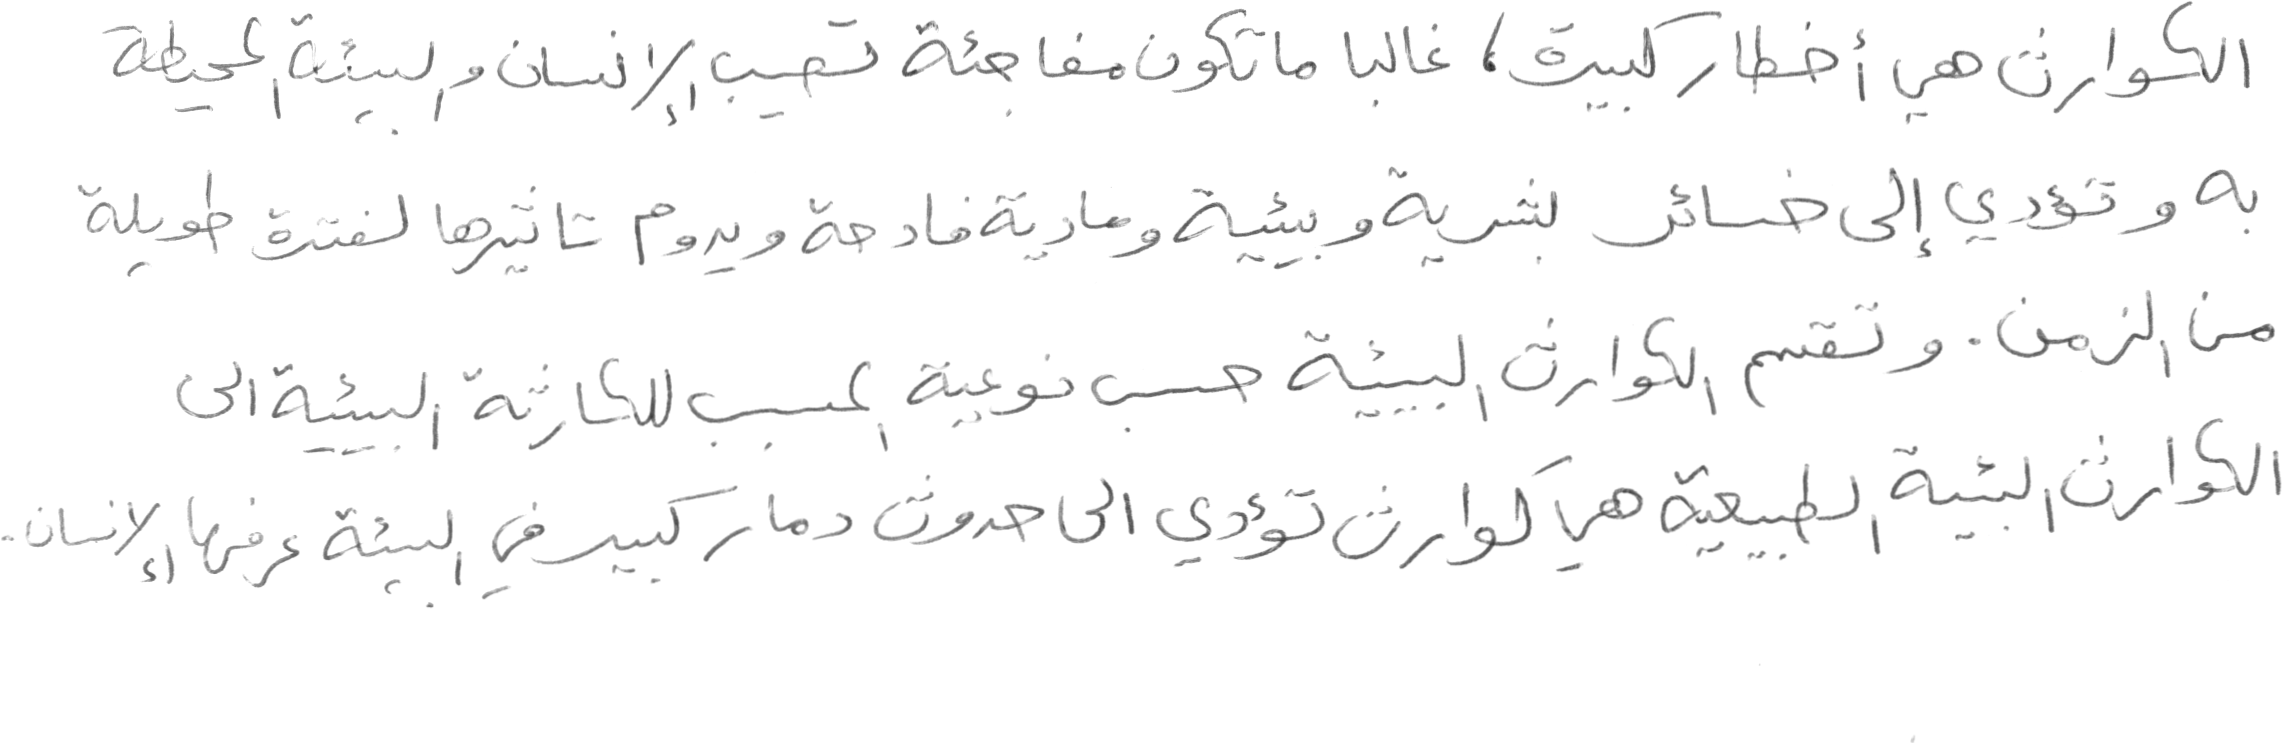 الكوارث هي أخطار كبيرة، غالبا ما تكون مفاجئة تصيب الإنسان والبيئة المحيطة
به وتؤدي إلى خسائر بشرية وبيئية ومادية فادحة ويدوم تاثيرها لفترة طويلة
من الزمن. وتقسم الكوارث البيئية حسب نوعية المسبب للكارثة البيئية الى
الكوارث البئية الطبيعية هي كوارث تؤدي الى حدوث دمار كبير في البيئة عرفها الإنسان.